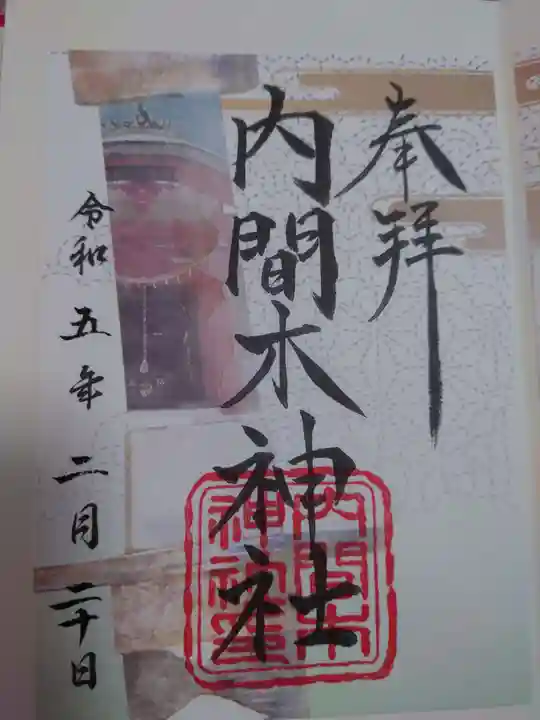 奉拝
内間木神社
令和五年二月二十日
内間木
神社